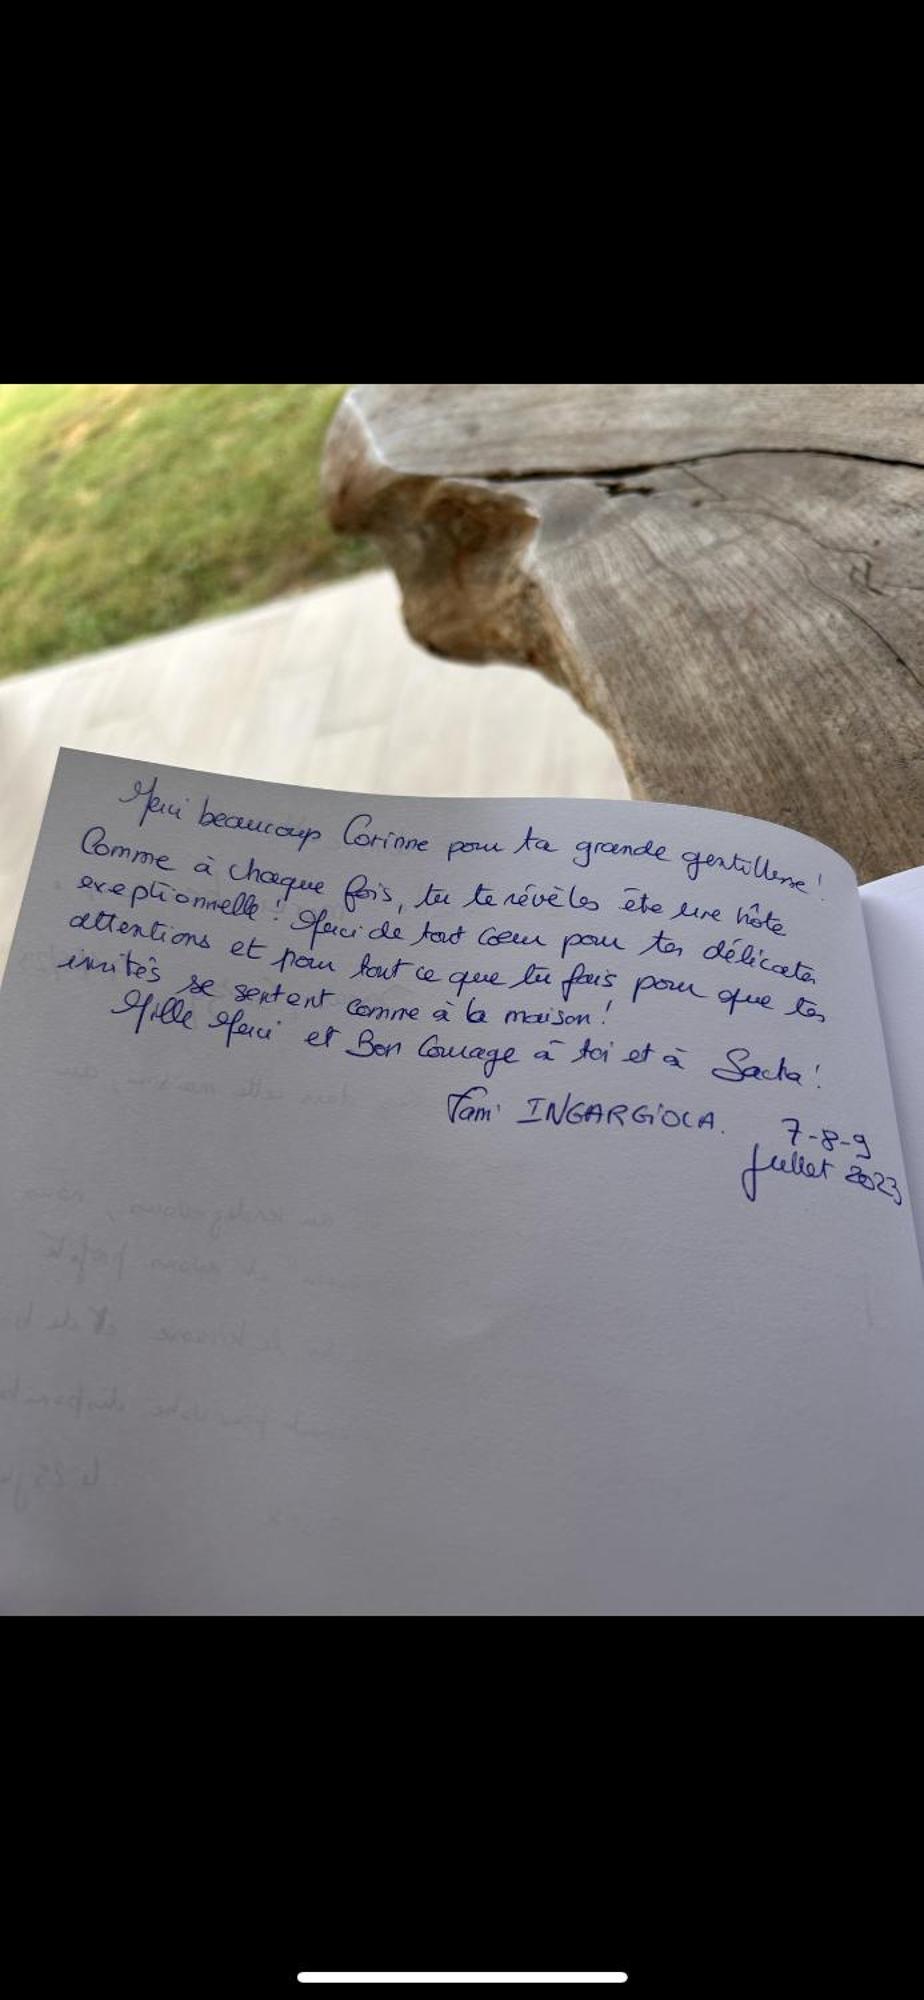 Merci beaucoup Corinne pour ta grande gentillesse!
Comme à chaque fois, tu te révèles être une hôte
exeptionnelle! Merci de tout coeur pour tes délicates
attentions et pour tout ce que tu fais pour que tes
invités se sentent comme à la maison!
Mille Merci et Bon Courage à toi et à Sacha!
Fam' INGARGiOLA.
7-8-9
Juillet 2023